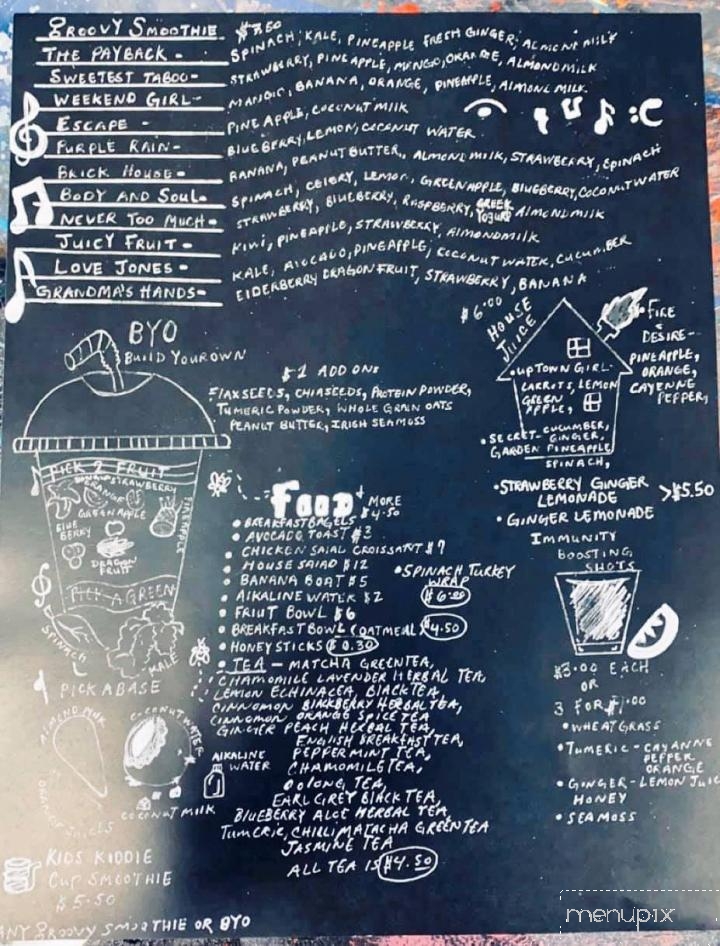 GROOVY SMOOTHIE
THE PAYBACK - SPINACH, KALE, PINEAPPLE FRESH GINGER, ALMOND MILK
SWEETEST TABOO - STRAWBERRY, PINEAPPLE, MENGO, ORANGE, ALMOND MILK
WEEKEND GIRL - BANANA, ORANGE, PINEAPPLE, ALMOND MILK
ESCAPE - PINEAPPLE, COCONUT MILK
PURPLE RAIN - BLUEBERRY, LEMON, COCONUT WATER
BRICK HOUSE - BANANA, PEANUT BUTTER, ALMOND MILK, STRAWBERRY, SPINACH
BODY AND SOUL - SPINACH, CELERY, LEMON, GREEN APPLE, BLUEBERRY, COCONUT WATER
NEVER TOO MUCH - STRAWBERRY, BLUEBERRY, RASPBERRY, GREEK YOGURT ALMOND MILK
JUICY FRUIT - KIWI, PINEAPPLE, STRAWBERRY, ALMOND MILK
LOVE JONES - KALE, AVOCADO, PINEAPPLE, COCONUT WATER, CUCUMBER
GRANDMA'S HANDS - ELDERBERRY DRAGON FRUIT, STRAWBERRY, BANANA
BYO
BUILD YOUR OWN
$1 ADD ONS
FLAXSEEDS, CHIASEEDS, PROTEIN POWDER,
TUMERIC POWDER, WHOLE GRAIN OATS
PEANUT BUTTER, IRISH SEAMOSS
PICK 2 FRUIT
BANANA STRAWBERRY
ORANGE
GREEN APPLE
BLUE
BERRY
PINEAPPLE
DRAGON
FRUIT
PICK A GREEN
SPINACH
KALE
PICK A BASE
ALMOND MILK
COCONUT WATER
COCONUT MILK
ALKALINE
WATER
KIDS KIDDIE
CUP SMOOTHIE
$5.50
ANY GROOVY SMOOTHIE OR BYO
FOOD & MORE
BREAKFAST BAGELS $4.50
AVOCADO TOAST $3
CHICKEN SALAD CROISSANT $7
HOUSE SALAD $12
BANANA BOAT $5
ALKALINE WATER $2
FRUIT BOWL $6
BREAKFAST BOWL (OATMEAL) $4.50
HONEY STICKS $0.30
SPINACH TURKEY
WRAP
$6.00
TEA - MATCHA GREEN TEA,
CHAMOMILE LAVENDER HERBAL TEA,
LEMON ECHINACEA, BLACK TEA,
CINNOMON BLACKBERRY HERBAL TEA,
CINNOMON ORANGE SPICE TEA
GINGER PEACH HERBAL TEA,
ENGLISH BREAKFAST TEA,
PEPPERMINT TEA,
CHAMOMILE TEA,
OOLONG TEA,
EARL GREY BLACK TEA,
BLUEBERRY ALOE HERBAL TEA,
TUMERIC, CHILLI MATACHA GREEN TEA
JASMINE TEA
ALL TEA IS $4.50
$6.00
HOUSE
JUICE
UPTOWN GIRL -
CARROTS, LEMON
GREEN
APPLE,
SECRET - CUCUMBER,
GARDEN GINGER, PINEAPPLE
SPINACH,
FIRE &
DESIRE -
PINEAPPLE,
ORANGE,
CAYENNE
PEPPER,
STRAWBERRY GINGER
LEMONADE
GINGER LEMONADE
>$5.50
IMMUNITY
BOOSTING
SHOTS
$3.00 EACH
OR
3 FOR
WHEATGRASS
TUMERIC - CAYANNE
PEPPER
ORANGE
GINGER - LEMON JUIC
HONEY
SEAMOSS
menupix